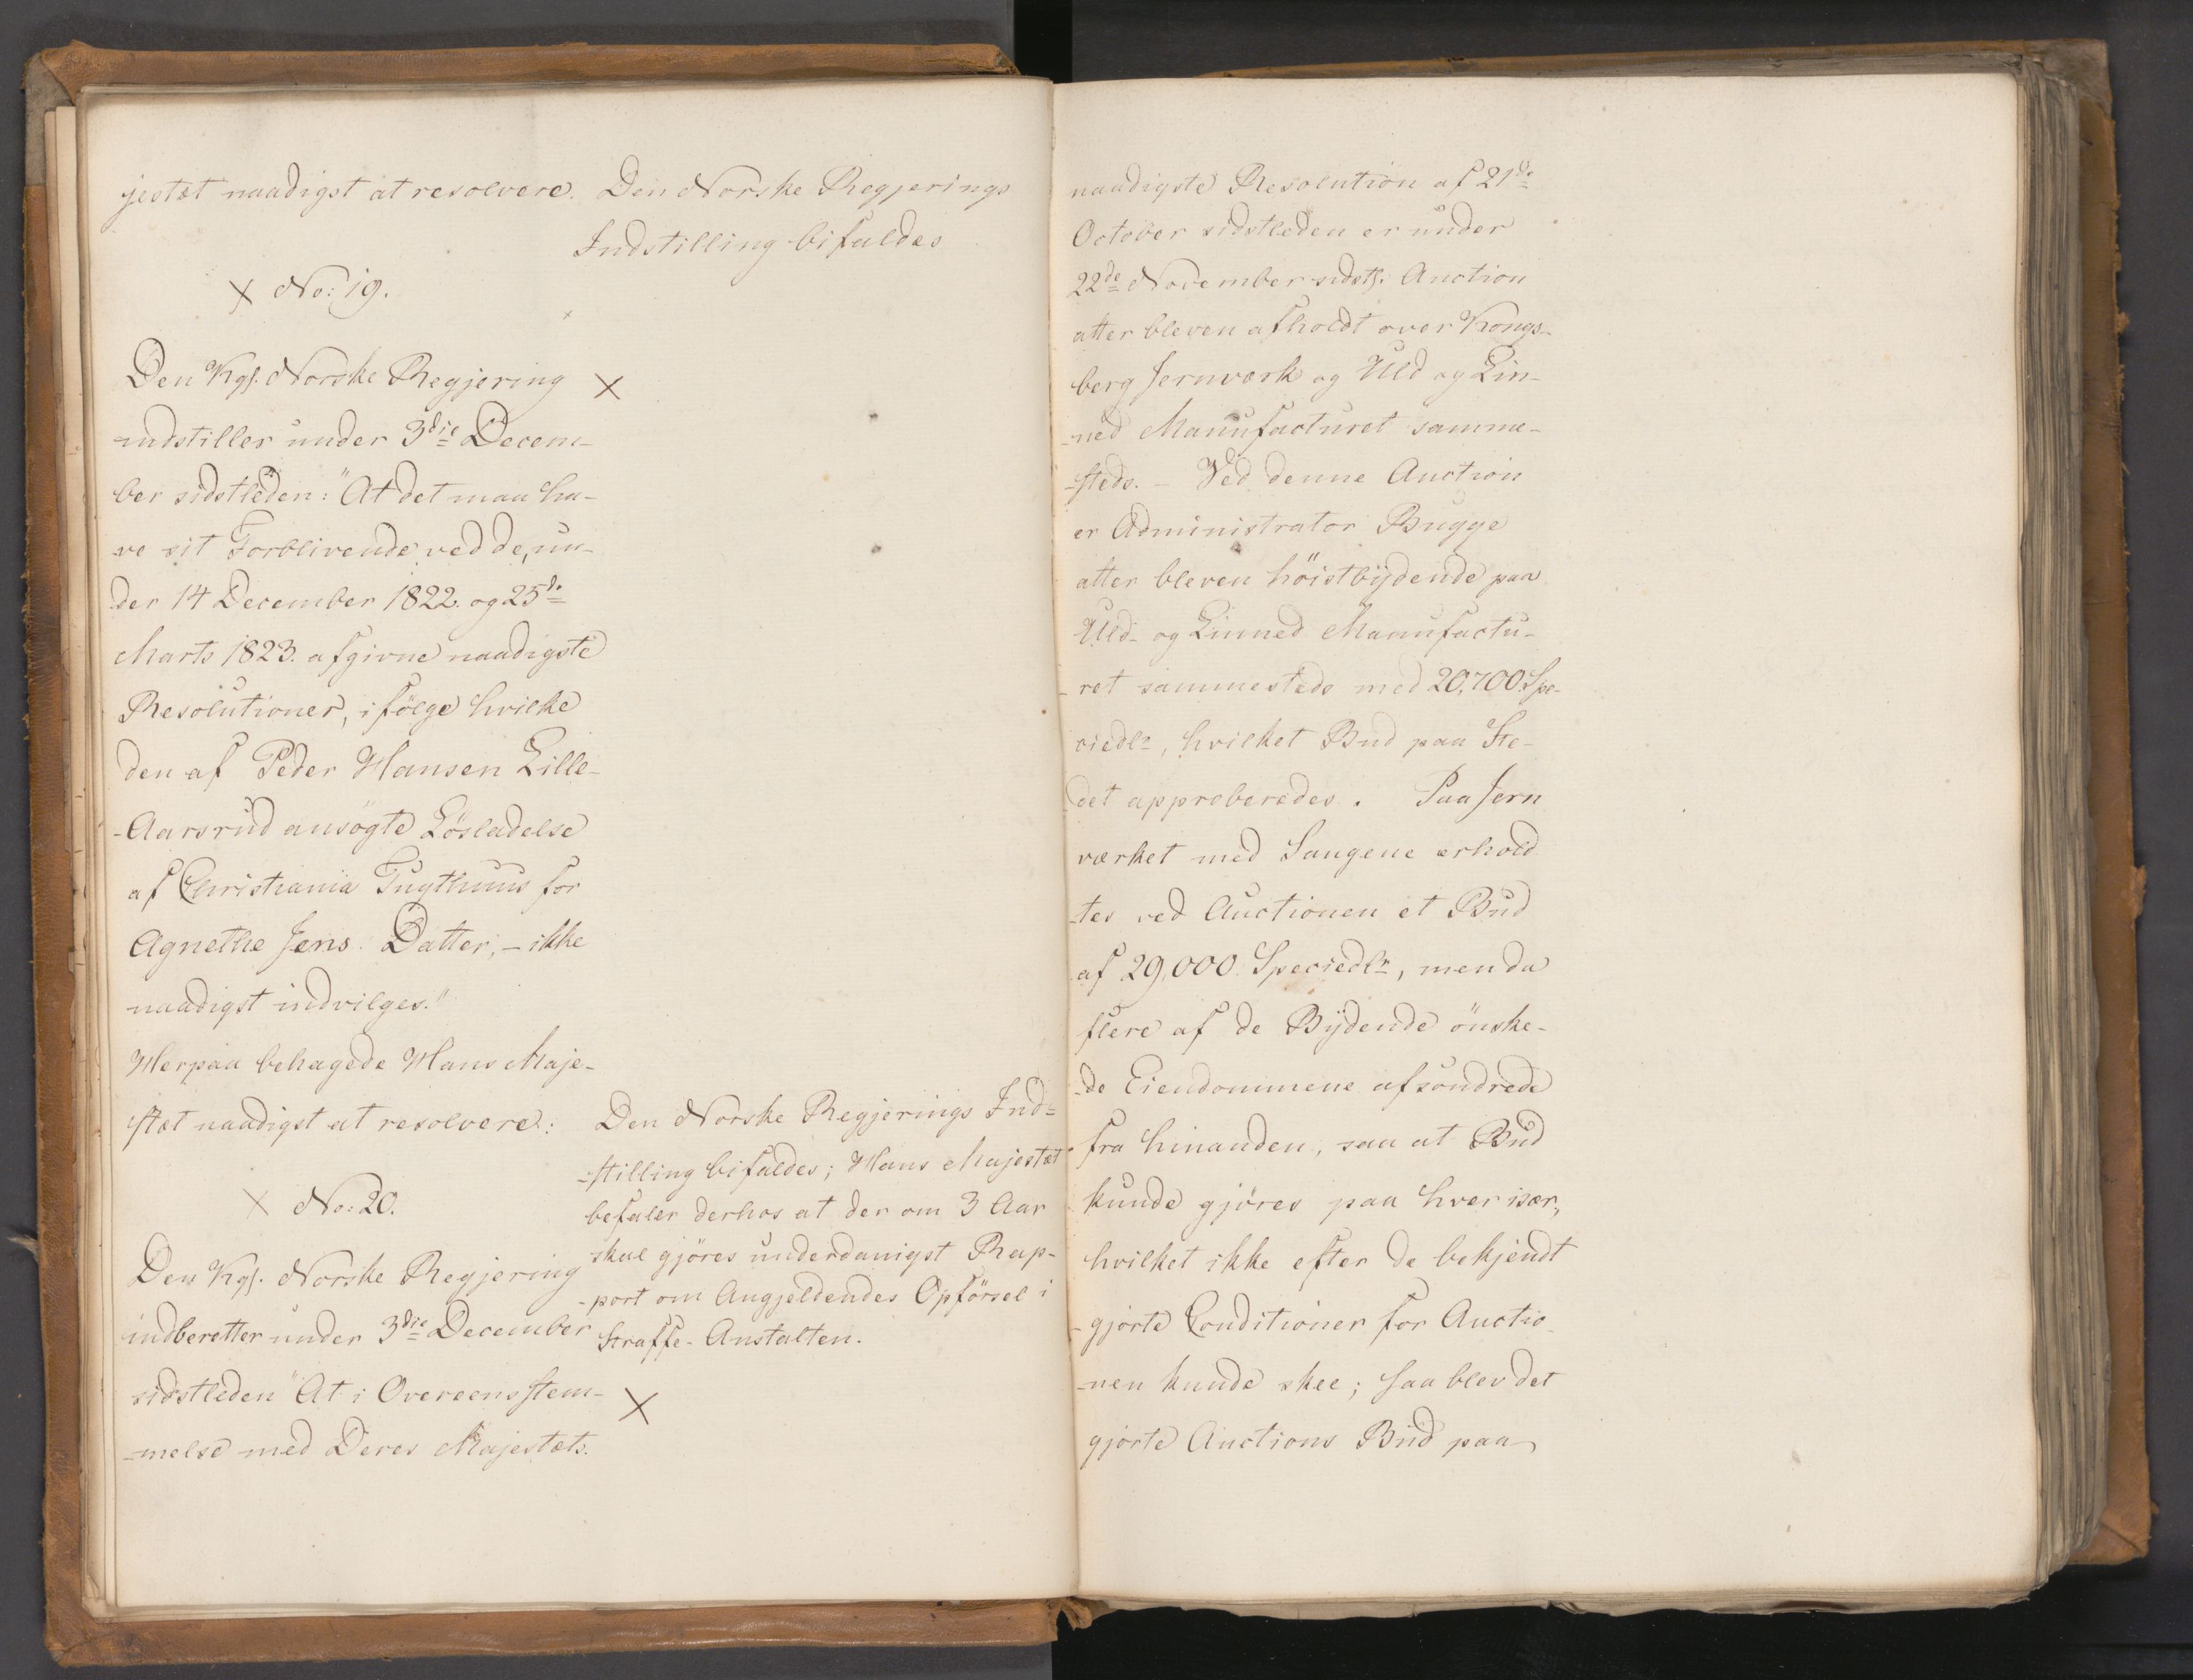 jestæt naadigst at resolvere.
Den Norske Regjerings
Indstilling bifaldes
No: 19.
Den Kgl. Norske Regjering
indstiller under 3die Decem-
ber sidstleden: "At det maa ha-
ve sit Forblivende ved de, un-
der 14 December 1822. og 25de
Marts 1823. afgivne naadigste
Resolutioner, ifölge hvilke
den af Peder Hansen Lille-
-Aarsrud ansögte Lösladelse
af Christiania Tugthuus for
Agnethe Jens Datter, - ikke
naadigst indvilges."
Herpaa behagede Hans Maje-
stæt naadigst at resolvere:
Den Norske Regjerings Ind-
-stilling bifaldes; Hans Majestæt
befaler derhos at der om 3 Aar
skal gjöres underdanigst Rap-
-port om Angjeldendes Opförsel i
Straffe-Anstalten.
No: 20.
Den Kgl. Norske Regjering
indberetter under 3die December
sidstleden "At i Overeensstem-
-melse med Deres Majestæts
naadigste Resolution af 21de
October sidstleden er under
22de November sidstl. Auction
atter bleven afholdt over Kongs-
berg Jernværk og Uld og Lin-
-ned Manufacturet samme-
-steds. - Ved denne Auction
er Administrator Bugge
atter bleven höistbydende paa
Uld- og Linned Manufactu-
-ret sammesteds med 20,700 Spe-
ciedlr, hvilket Bud paa Ste-
det approberedes. Paa Jern
værket med Saugene erhold
-tes ved Auctionen et Bud
af 29,000 Speciedlr, men da
flere af de Bydende önske-
-de Eiendommene afsondrede
fra hinanden, saa at Bud
kunde gjöres paa hver især,
hvilket ikke efter de bekjendt
-gjorte Conditioner for Auctio-
-nen kunde skee; saa blev det
gjorte Auctions Bud paa